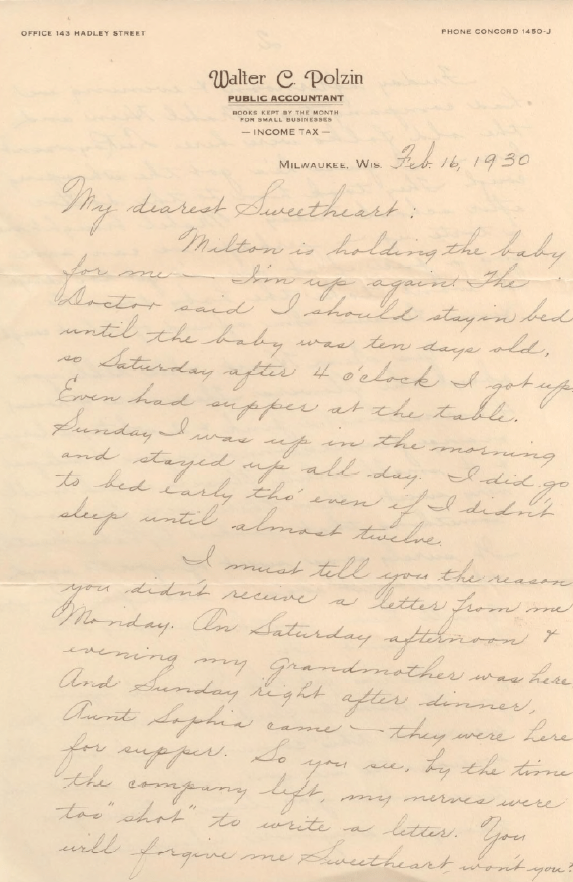 OFFICE 143 HADLEY STREET
PHONE CONCORD 1450-J
Walter C. Polzin
PUBLIC ACCOUNTANT
BOOKS KEPT BY THE MONTH
FOR SMALL BUSINESSES
— INCOME TAX —
MILWAUKEE, WIS. Feb. 16, 1930
My dearest Sweetheart:
Milton is holding the baby
for me — I'm up again! The
Doctor said I should stay in bed
until the baby was ten days old,
so Saturday after 4 o'clock I got up.
Even had supper at the table.
Sunday I was up in the morning
and stayed up all day. I did go
to bed early tho' even if I didn't
sleep until almost twelve.
I must tell you the reason
you didn't receive a letter from me
Monday. On Saturday afternoon &
evening my Grandmother was here
And Sunday right after dinner,
Aunt Sophia came — they were here
for supper. So you see, by the time
the company left, my nerves were
too "shot" to write a letter. You
will forgive me Sweetheart, won't you?